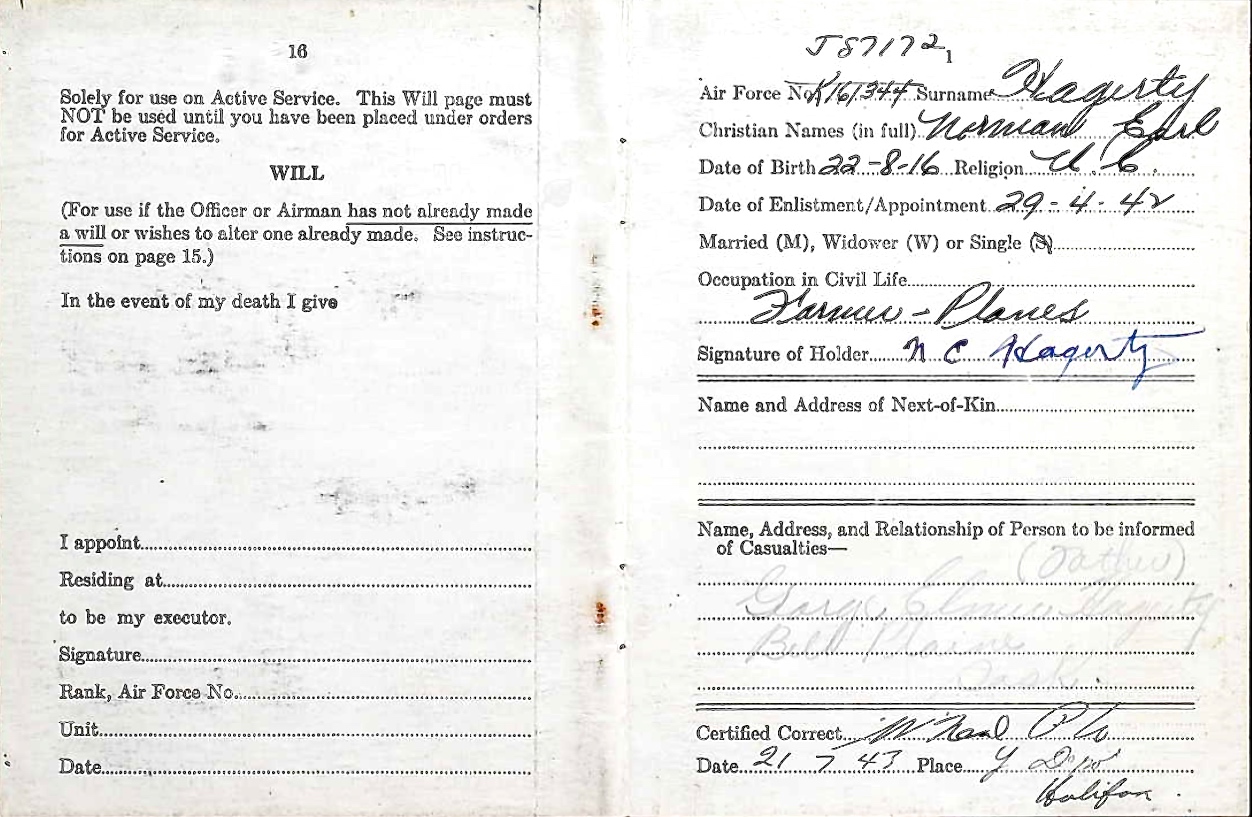 16
Solely for use on Active Service. This Will page must
NOT be used until you have been placed under orders
for Active Service.
WILL
(For use if the Officer or Airman has not already made
a will or wishes to alter one already made. See instruc-
tions on page 15.)
In the event of my death I give
I appoint
Residing at
to be my executor.
Signature
Rank, Air Force No.
Unit
Date
J87172
1
Air Force No. R161344 Surname Hagerty
Christian Names (in full) Norman Earl
Date of Birth 22-8-16 Religion U.C.
Date of Enlistment/Appointment 29-4-42
Married (M), Widower (W) or Single (S)
Occupation in Civil Life
Farmer -
Signature of Holder N E Hagerty
Name and Address of Next-of-Kin
Name, Address, and Relationship of Person to be informed
of Casualties—
(Father)
George Elmer Hagerty
Belle Plaine
Sask.
Certified Correct
Date 21 7 43 Place Y
Halifax.